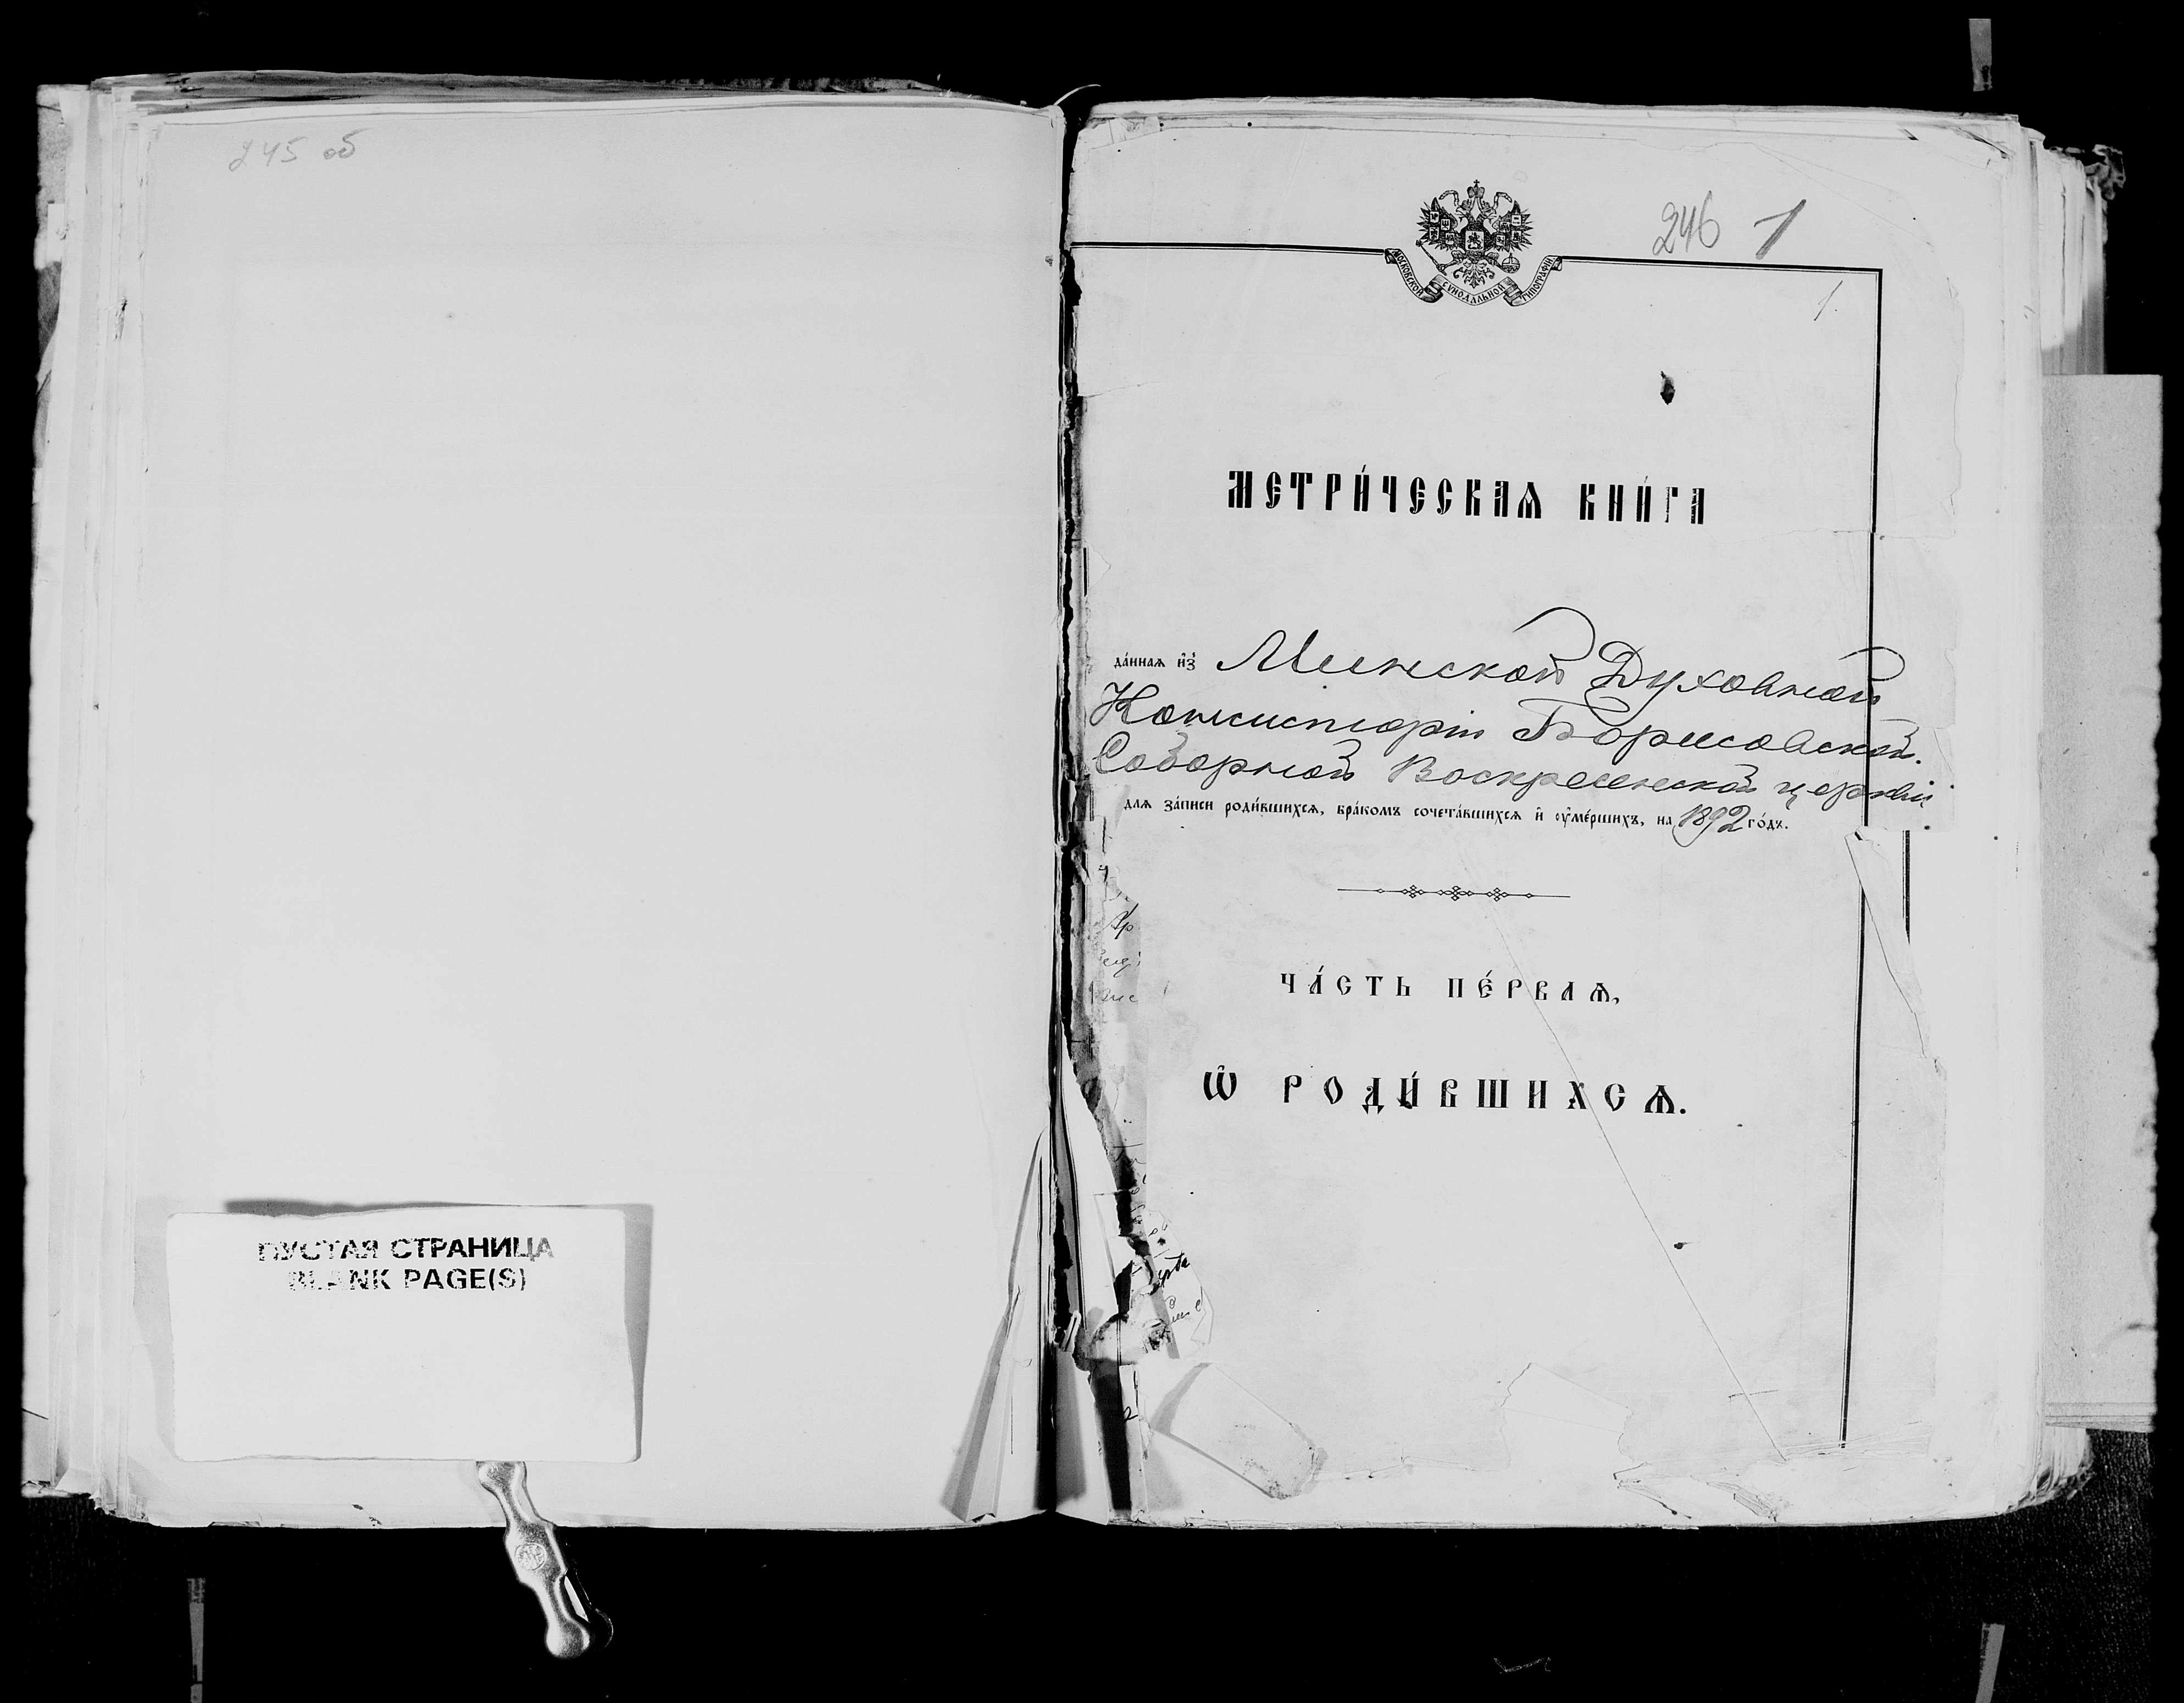 245 об
ПУСТАЯ СТРАНИЦА
BLANK PAGE(S)
246 1
МОСКОВСКОЙ СѴНОДАЛЬНОЙ ТИПОГРАФІИ
1.
МЕТРИ́ЧЕСКАѦ КНИ́ГА
да́ннаѧ и҆з̾ Минской Духовной
Консисторіи Борисовской
Соборной Воскресенской церкви
длѧ за́писи роди́вшихсѧ, бра́комъ сочета́вшихсѧ и҆ ᲂу҆ме́ршихъ, на 1892 го́дъ.
ЧА́СТЬ ПЕ́РВАѦ,
Ѡ҆ РОДИ́ВШИХСѦ.